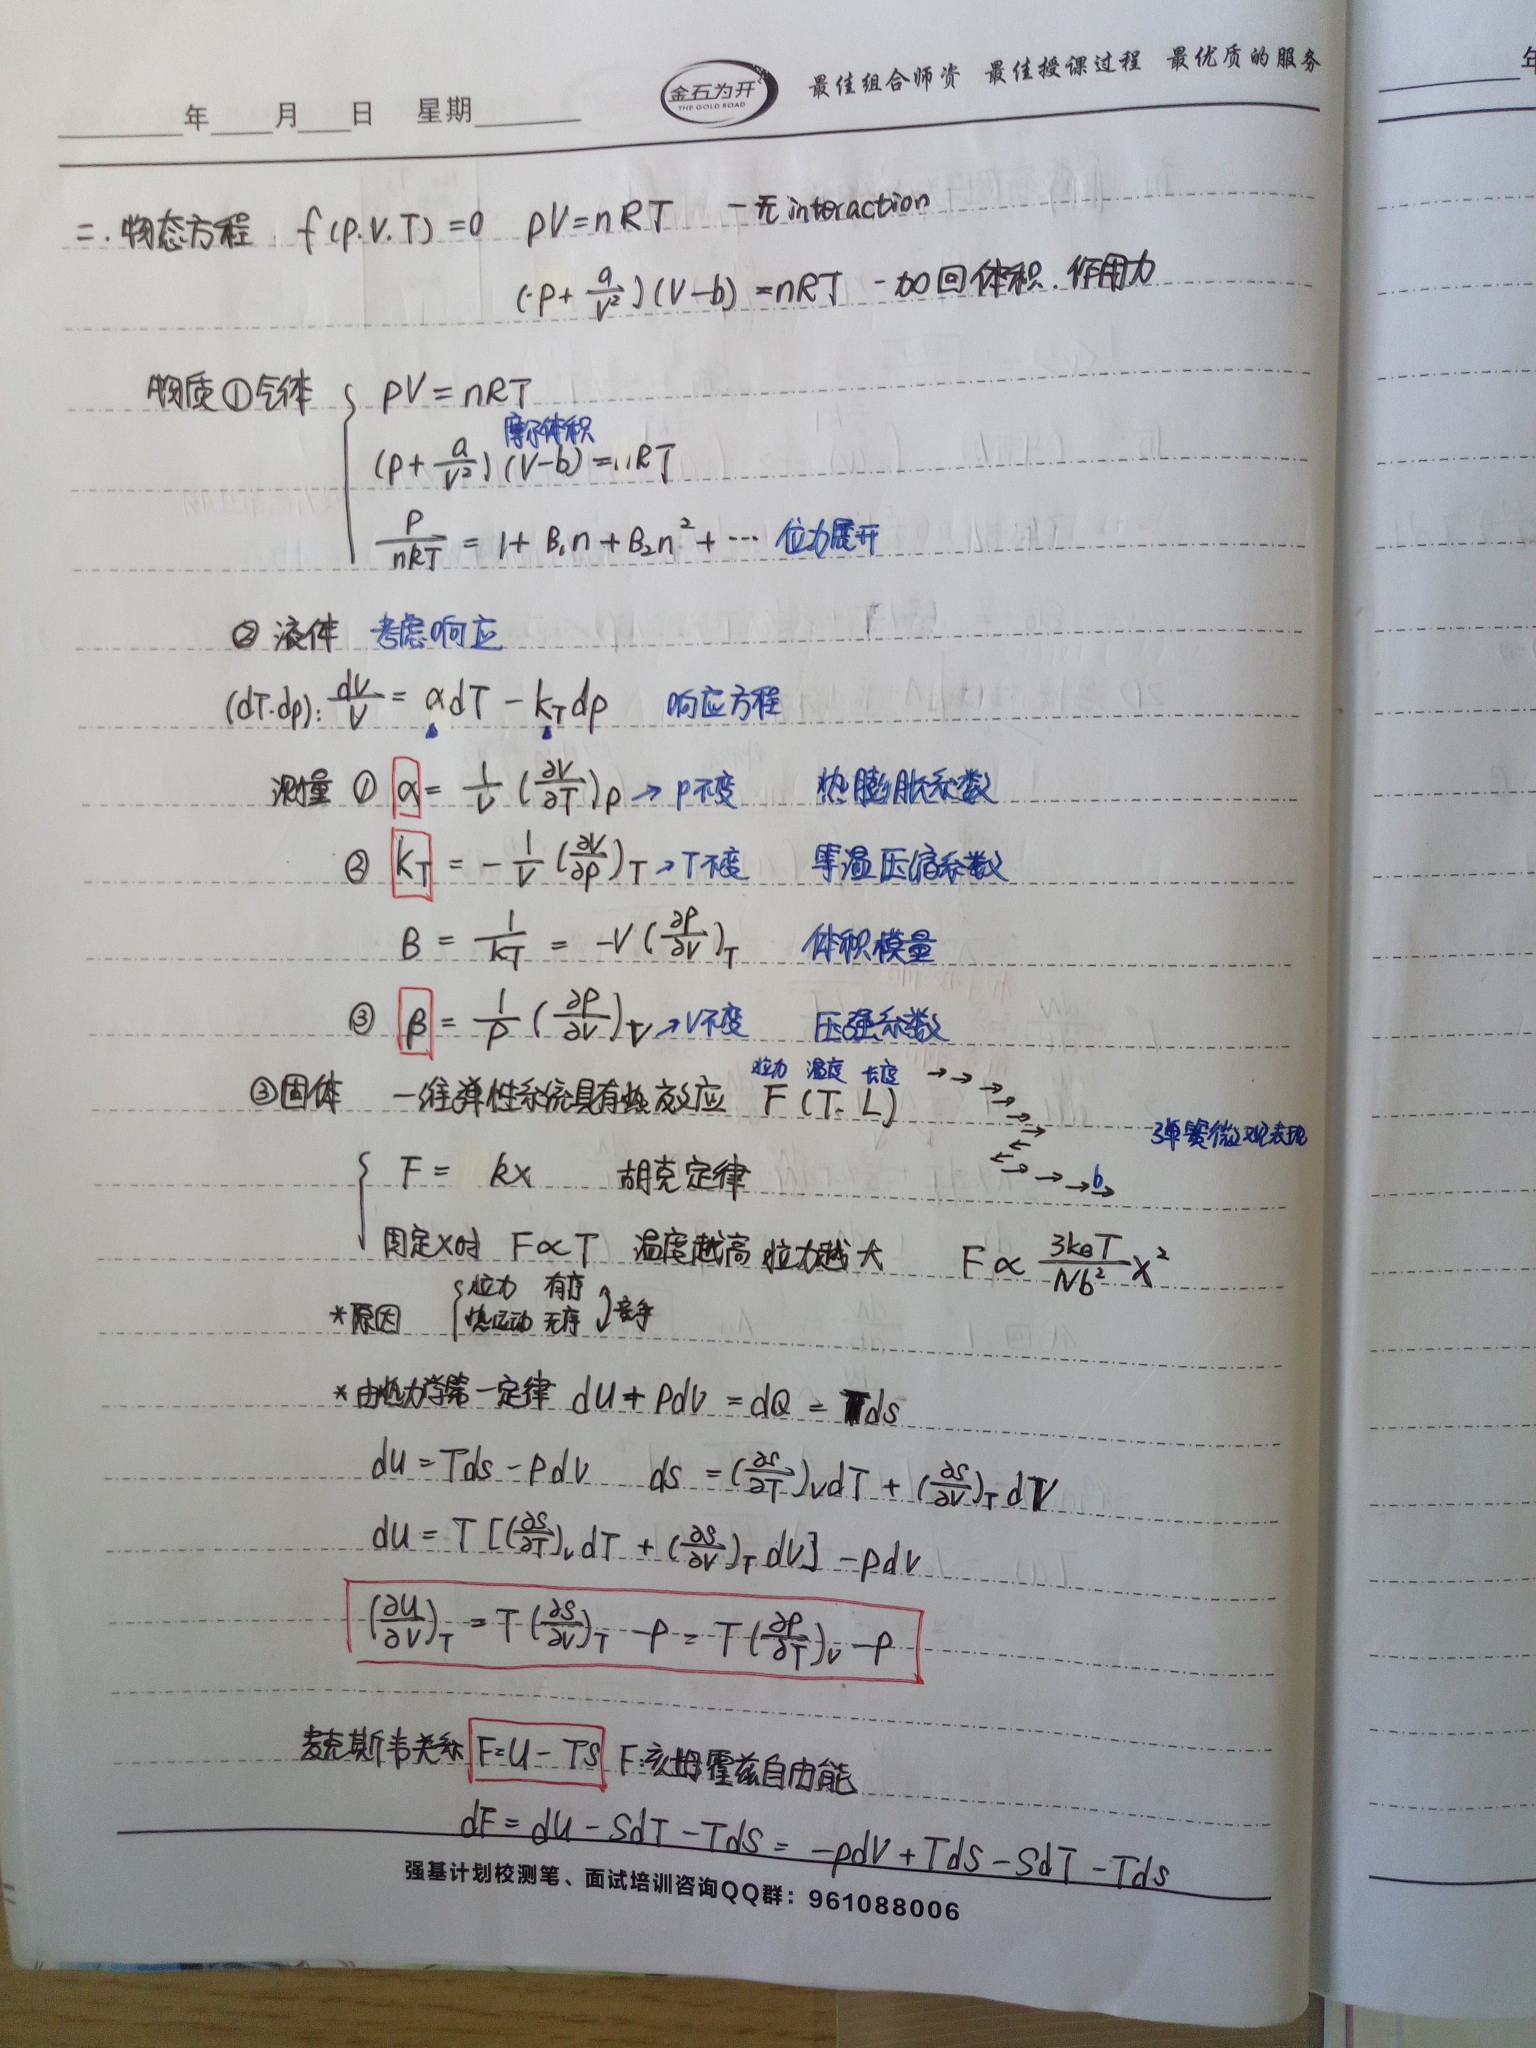 年 月 日 星期 金石为开 THE GOLD ROAD 最佳组合师资 最佳授课过程 最优质的服务
年
二.物态方程 f(p.V.T)=0 pV=nRT -无interaction
(p+\frac{a}{V^2})(V-b)=nRT -加回体积.作用力
物质①气体 { pV=nRT
摩尔体积
(p+\frac{a}{V^2})(V-b)=nRT
\frac{P}{nRT}=1+B_1n+B_2n^2+⋯ 位力展开
② 液体 考虑响应
(dT.dp): \frac{dV}{V}=αdT-k_Tdp 响应方程
测量 ① α=\frac{1}{V}(\frac{∂V}{∂T})_P→P不变 热膨胀系数
② k_T=-\frac{1}{V}(\frac{∂V}{∂P})_T→T不变 等温压缩系数
B=\frac{1}{k_T}=-V(\frac{∂P}{∂V})_T 体积模量
③ β=\frac{1}{P}(\frac{∂P}{∂V})_V→V不变 压强系数
拉力 温度 长度
③固体 一维弹性系统具有热效应 F(T.L) →→→
弹簧微观表现
{ F=kx 胡克定律 b
固定x时 F∝T 温度越高 拉力越大 F∝\frac{3k_BT}{Nb^2}x^2
*原因 { 拉力 有序
热运动 无序 } 竞争
*由热力学第一定律 dU+PdV=dQ=Tds
du=Tds-PdV ds=(\frac{∂S}{∂T})_VdT+(\frac{∂S}{∂V})_TdV
du=T[(\frac{∂S}{∂T})_VdT+(\frac{∂S}{∂V})_TdV]-PdV
(\frac{∂U}{∂V})_T=T(\frac{∂S}{∂V})_T-P=T(\frac{∂P}{∂T})_V-P
麦克斯韦关系 F=U-TS F:亥姆霍兹自由能
dF=dU-SdT-TdS=-pdV+TdS-SdT-Tds
强基计划校测笔、面试培训咨询QQ群：961088006